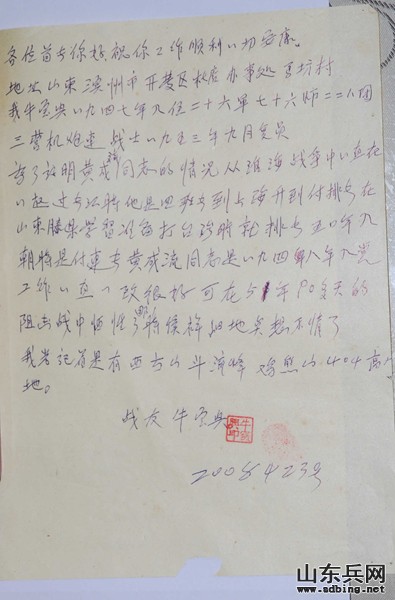 各位首长你好.祝你工作顺利一切安康。
地址山东滨州市开发区杜店办事处 坊村
我牛宝兴一九四七年入伍二十六军七十六师二二八团
三营机炮连 战士一九五三年九月复员
为了证明黄成流同志的情况 从淮海战争中一直在
一起过去记得他是四班长到上海升到付排长在
山东滕县学习准备打台湾时就排长五0年入
朝时是付连长黄成流同志是一九四八年入党
工作一直一致很好可在51年90多天的
阻击战中牺牲了那时候祥细地实想不情了
我老记着是在西方山斗流峰 鸡熊山.404高
地。
战友 牛宝兴
2008 4 23号
山东兵网
www.sdbing.net